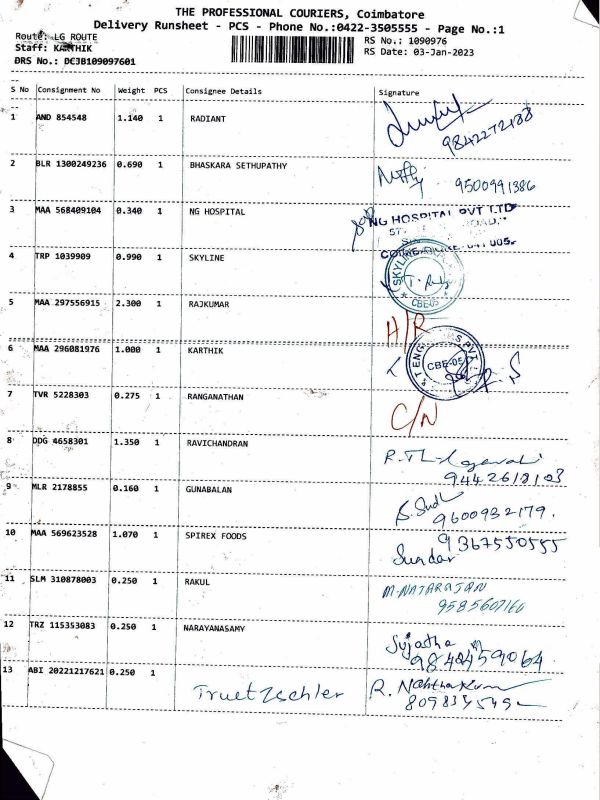 THE PROFESSIONAL COURIERS, Coimbatore
Delivery Runsheet - PCS - Phone No.:0422-3505555 - Page No.:1
Route: LG ROUTE
RS No.: 1090976
Staff: KARTHIK
RS Date: 03-Jan-2023
DRS No.: DCJB109097601
S No Consignment No Weight PCS Consignee Details Signature
1 AND 854548 1.140 1 RADIANT
9842272188
2 BLR 1300249236 0.690 1 BHASKARA SETHUPATHY
9500991386
3 MAA 568409104 0.340 1 NG HOSPITAL NG HOSPITAL PVT LTD
4 TRP 1039909 0.990 1 SKYLINE SKYLINE
CBE-05
5 MAA 297556915 2.300 1 RAJKUMAR H/R
6 MAA 296081976 1.000 1 KARTHIK CBE-05
7 TVR 5228303 0.275 1 RANGANATHAN C/N
8 DDG 4658301 1.350 1 RAVICHANDRAN
9 MLR 2178855 0.160 1 GUNABALAN
9600932179.
10 MAA 569623528 1.070 1 SPIREX FOODS 9367550555
Sundar
11 SLM 310878003 0.250 1 RAKUL M.NATARAJAN
9585607160
12 TRZ 115353083 0.250 1 NARAYANASAMY Sujatha
9842459064
13 ABI 20221217621 0.250 1 Truetzschler R.